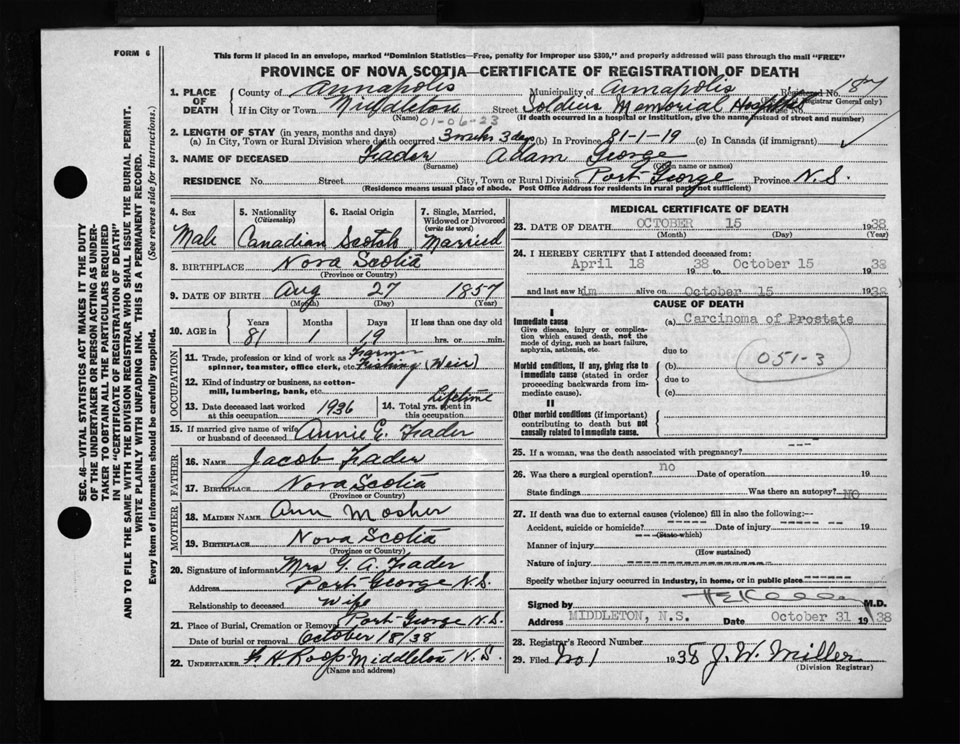 FORM 6
SEC. 46—VITAL STATISTICS ACT MAKES IT THE DUTY
OF THE UNDERTAKER OR PERSON ACTING AS UNDER-
TAKER TO OBTAIN ALL THE PARTICULARS REQUIRED
IN THE "CERTIFICATE OF REGISTRATION OF DEATH"
AND TO FILE THE SAME WITH THE DIVISION REGISTRAR WHO SHALL ISSUE THE BURIAL PERMIT.
WRITE PLAINLY WITH UNFADING INK. THIS IS A PERMANENT RECORD.
Every item of information should be carefully supplied. (See reverse side for instructions.)
This form if placed in an envelope, marked "Dominion Statistics—Free, penalty for improper use $300," and properly addressed will pass through the mail "FREE"
PROVINCE OF NOVA SCOTIA—CERTIFICATE OF REGISTRATION OF DEATH
1. PLACE OF DEATH County of Annapolis Municipality of Annapolis Registered No. 187
(Registrar General only)
If in City or Town Middleton Street Soldiers Memorial Hospital No.
(Name) 01-06-23 (If death occurred in a hospital or institution, give the name instead of street and number)
2. LENGTH OF STAY (in years, months and days)
(a) In City, Town or Rural Division where death occurred 3 weeks 3 days (b) In Province 81-1-19 (c) In Canada (if immigrant)
3. NAME OF DECEASED Frader Adam George
(Surname) (Given name or names)
RESIDENCE No. Street City, Town or Rural Division Port George Province N.S.
(Residence means usual place of abode. Post Office Address for residents in rural parts not sufficient)
4. Sex 5. Nationality (Citizenship) 6. Racial Origin 7. Single, Married, Widowed or Divorced (write the word)
Male Canadian Scotch Married
8. BIRTHPLACE Nova Scotia
(Province or Country)
9. DATE OF BIRTH Aug 27 1857
(Month) (Day) (Year)
10. AGE in Years Months Days If less than one day old
81 1 19 hrs. or min.
OCCUPATION
11. Trade, profession or kind of work as spinner, teamster, office clerk, etc. Farmer Fishing (Weir)
12. Kind of industry or business, as cotton-mill, lumbering, bank, etc.
13. Date deceased last worked at this occupation 1936 14. Total yrs. spent in this occupation Lifetime
15. If married give name of wife or husband of deceased Annie E. Frader
FATHER
16. NAME Jacob Frader
17. BIRTHPLACE Nova Scotia
(Province or Country)
MOTHER
18. MAIDEN NAME Ann Mosher
19. BIRTHPLACE Nova Scotia
(Province or Country)
20. Signature of informant Mrs G. A. Frader
Address Port George N.S.
Relationship to deceased Wife
21. Place of Burial, Cremation or Removal Port George N.S.
Date of burial or removal October 18/38
22. UNDERTAKER Middleton N.S.
(Name and address)
MEDICAL CERTIFICATE OF DEATH
23. DATE OF DEATH OCTOBER 15 1938
(Month) (Day) (Year)
24. I HEREBY CERTIFY that I attended deceased from:
April 18 1938 to October 15 1938
and last saw him alive on October 15 1938
CAUSE OF DEATH
I
Immediate cause (a) Carcinoma of Prostate
Give disease, injury or complication which caused death, not the mode of dying, such as heart failure, asphyxia, asthenia, etc.
due to
051-3
Morbid conditions, if any, giving rise to immediate cause (stated in order proceeding backwards from immediate cause). (b)
due to
(c)
II
Other morbid conditions (if important) contributing to death but not causally related to immediate cause.
25. If a woman, was the death associated with pregnancy? ---
26. Was there a surgical operation? no Date of operation 19
State findings Was there an autopsy? NO
27. If death was due to external causes (violence) fill in also the following:—
Accident, suicide or homicide? ----- Date of injury ----- 19
(State which)
Manner of injury
(How sustained)
Nature of injury -----------------
Specify whether injury occurred in industry, in home, or in public place ------
Signed by M.D.
Address MIDDLETON, N.S. Date October 31 1938
28. Registrar's Record Number
29. Filed No 1 1938 J. W. Miller
(Division Registrar)